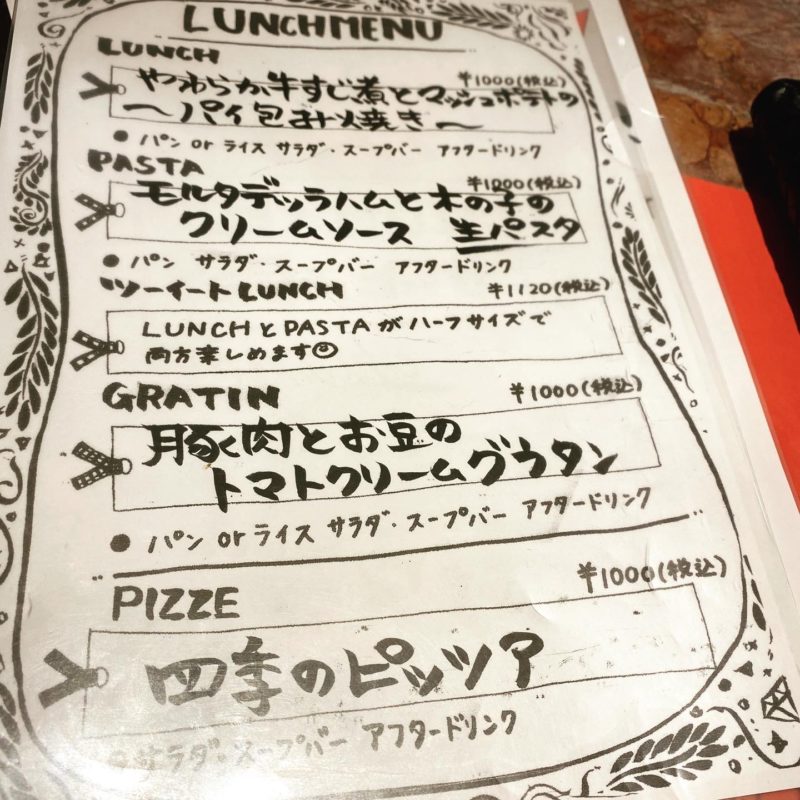 LUNCHMENU
LUNCH
¥1000(税込)
やわらか牛すじ煮とマッシュポテトの
～パイ包み焼き～
● パン or ライス サラダ・スープバー アフタードリンク
PASTA
¥1000(税込)
モルタデッラハムと木の子の
クリームソース 生パスタ
● パン サラダ・スープバー アフタードリンク
ツーイートLUNCH ¥1120(税込)
LUNCHとPASTAがハーフサイズで
両方楽しめます☺
GRATIN ¥1000(税込)
豚肉とお豆の
トマトクリームグラタン
● パン or ライス サラダ・スープバー アフタードリンク
PIZZE ¥1000(税込)
四季のピッツァ
● サラダ・スープバー アフタードリンク